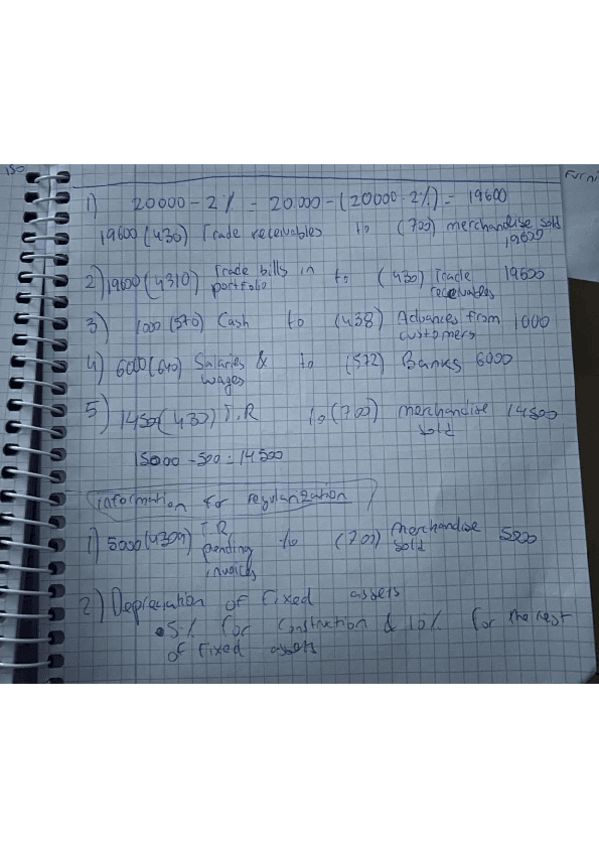 150
Furni
1) 20000 - 2% = 20.000 - (20000 · 2%) = 19600
19600 (430) Trade receivables to (700) merchandise sold 19600
2) 19600 (4310) Trade bills in portfolio to (430) Trade receivables 19600
3) 1000 (570) Cash to (438) Advances from customers 1000
4) 6000 (640) Salaries & wages to (572) Banks 6000
5) (430) T.R to (700) merchandise sold 14500
15000 - 500 = 14500
information for regularization
1) 5000 (4309) T.R pending invoices to (700) Merchandise sold 5000
2) Depreciation of fixed assets
• 5% for construction & 10% for the rest
of fixed assets